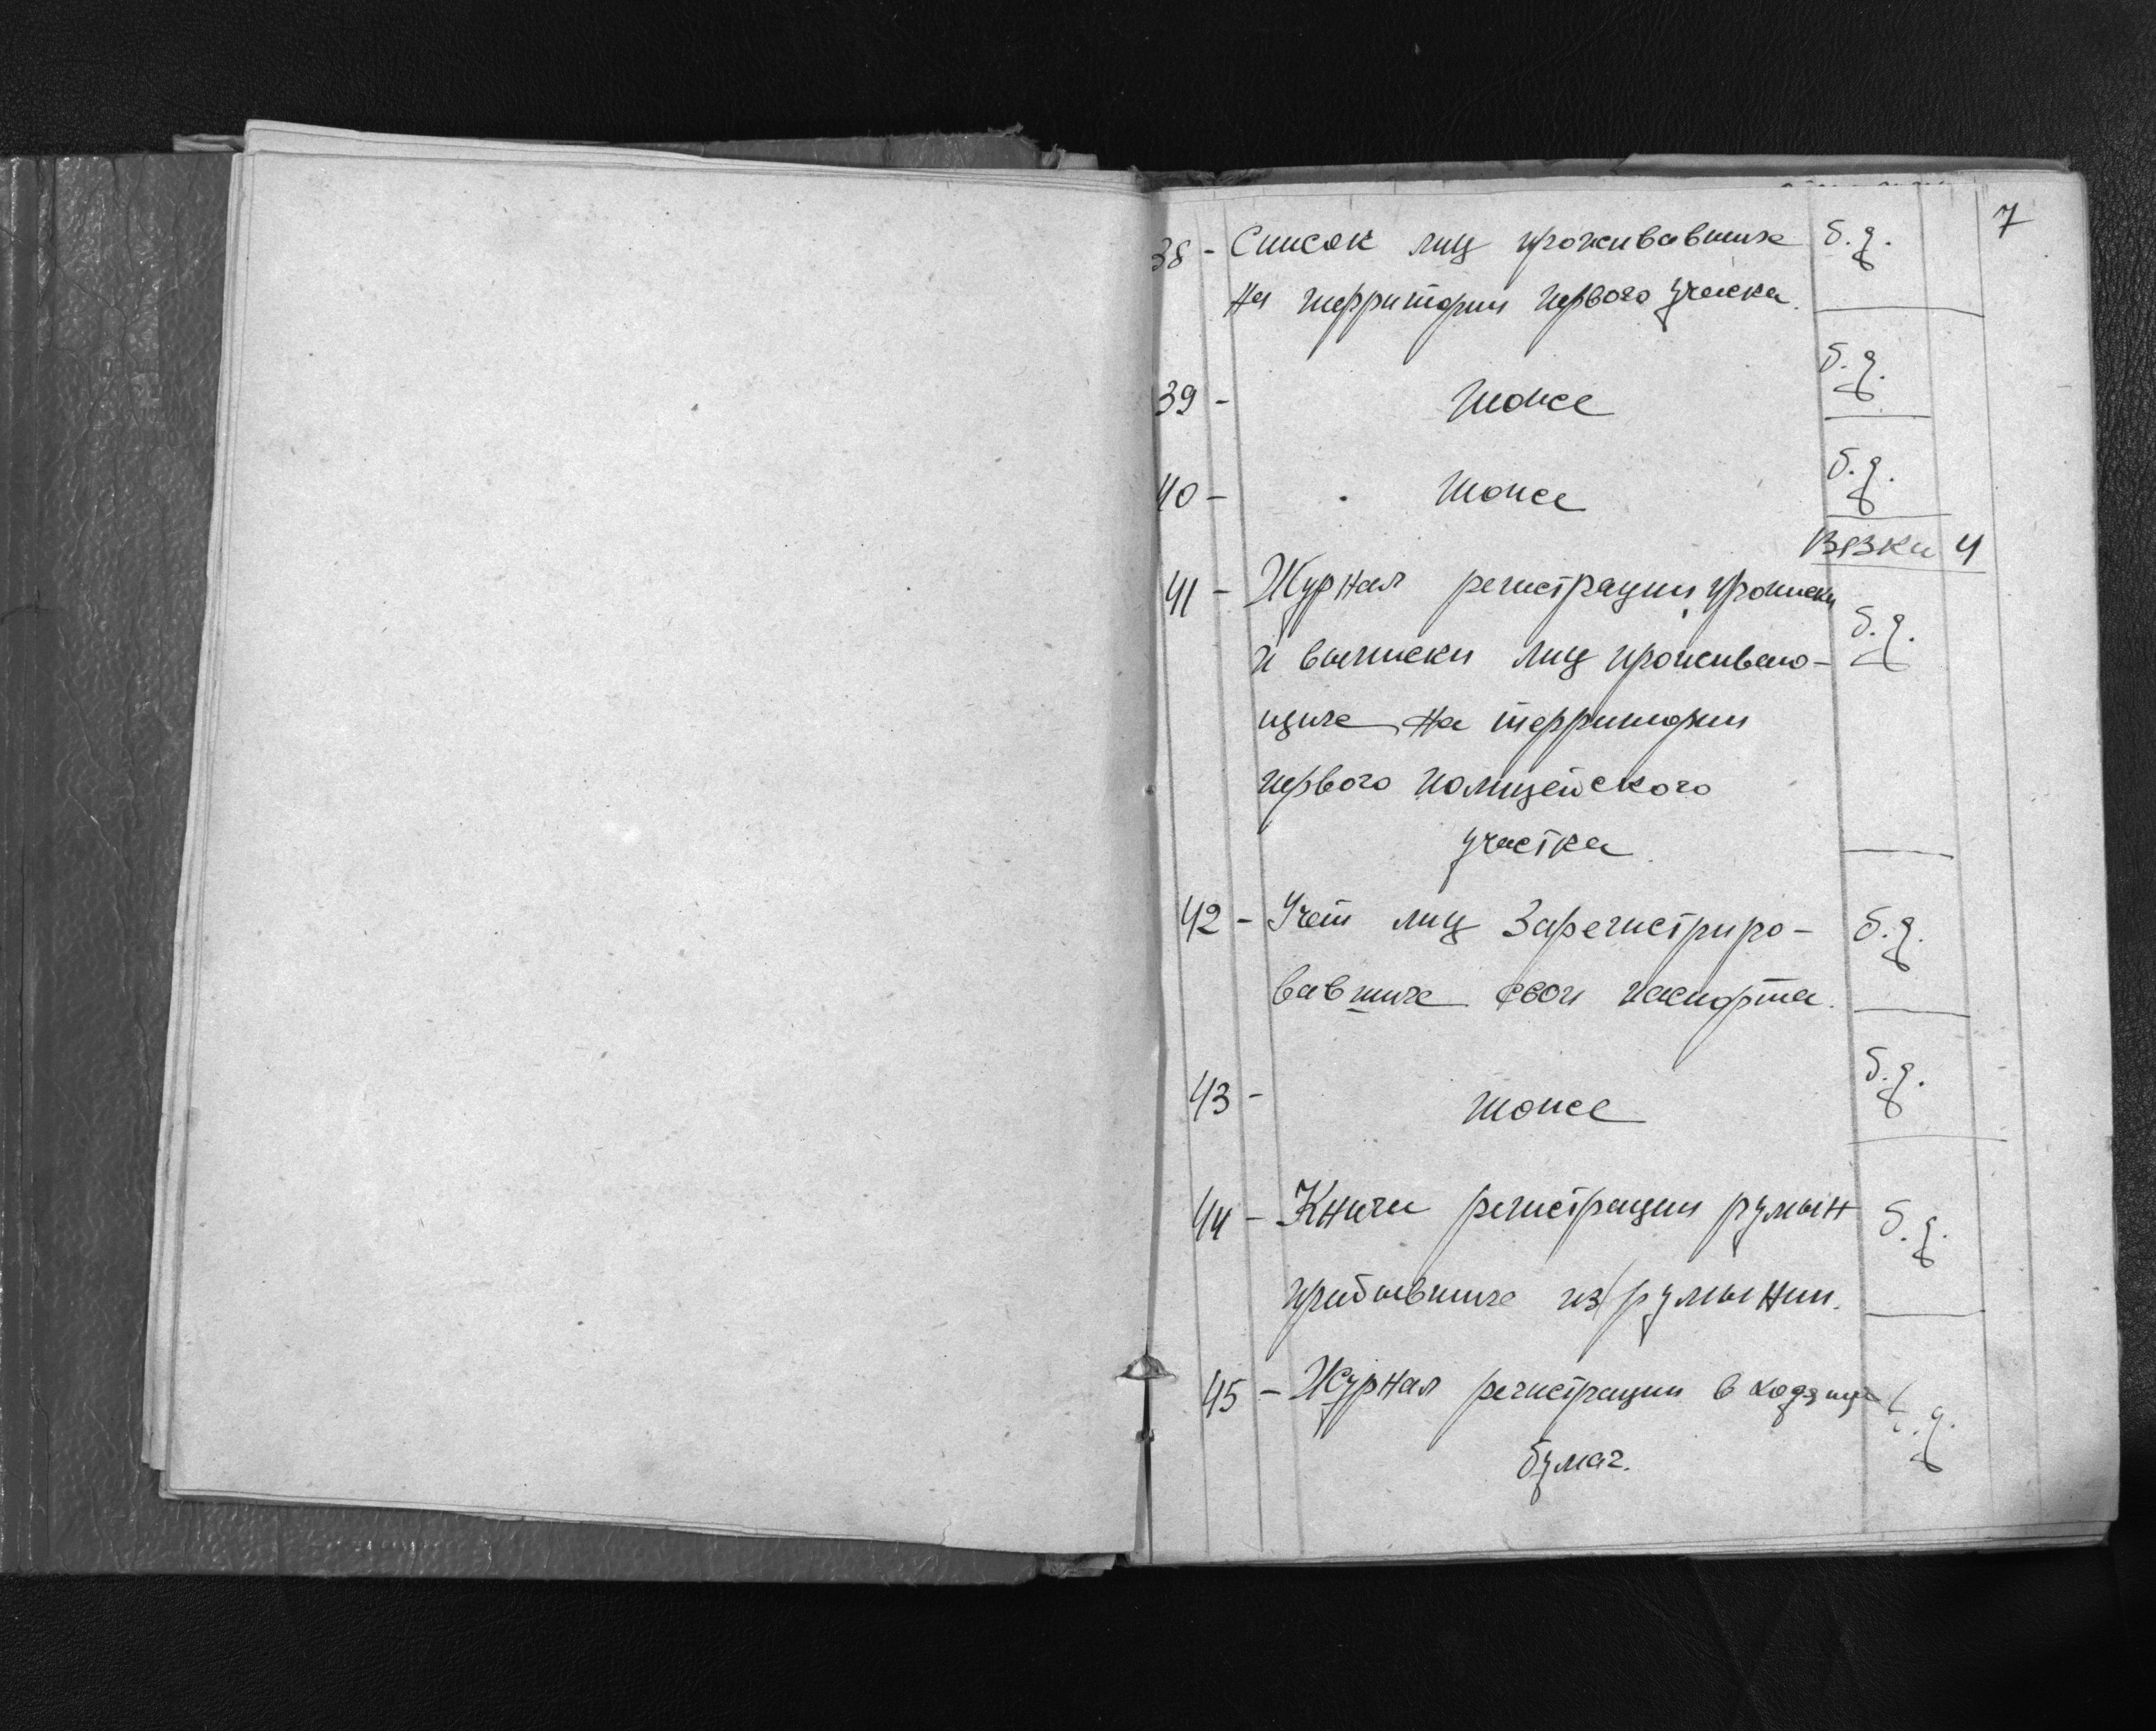 7
38 - Список лиц проживавших б.д.
на территории первого участка.
39 - тоже б.д.
40 - тоже б.д.
Вязка 4
41 - Журнал регистрации прописки
и выписки лиц проживаю- б.д.
щих на территории
первого полицейского
участка.
42 - Учет лиц зарегистриро- б.д.
вавших свои паспорта.
43 - тоже б.д.
44 - Книга регистрации румын б.д.
прибывших из румынии.
45 - Журнал регистрации входящих б.д.
бумаг.